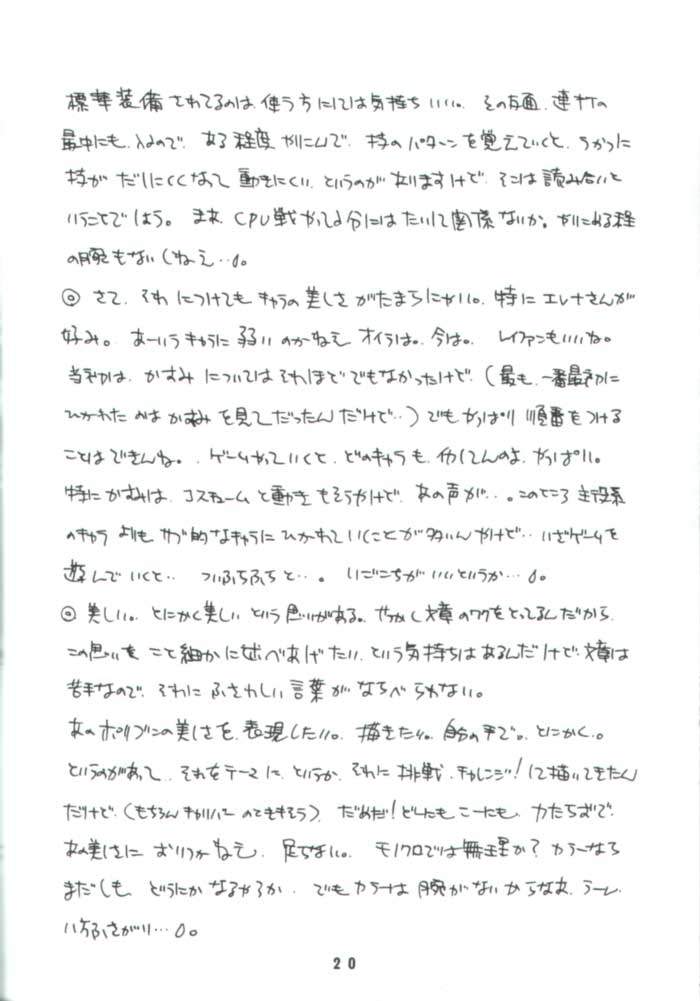 標準装備されてるのは、使う方にしては気持ちいい。その反面、連打の
最中にも、入るので、ある程度やりこんで、技のパターンを覚えていくと、うかつに
技がだしにくくなって動きにくい、というのがありますけど、そこは読み合いと
いうことでしょう。まあ、CPU戦やってる分にはたいして関係ないか。やりこめる程
の腕もないしねえ…。
◎ さて、それにつけてもキャラの美しさがたまらにゃい。特にエレナさんが
好み。あーいうキャラに弱いのかねえ オイラは。今は。 レイファンもいいね。
当初は、かすみについてはそれほどでもなかったけど、(最も、一番最初に
ひかれたのはかすみを見てだったんだけど…)でもやっぱり順番をつける
ことはできんね。ゲームやっていくと、どのキャラも、イカしてんのよ、やっぱり。
特にかすみは、コスチュームと動きもそうやけど、あの声が…。このところ主役系
のキャラよりも、サブ的なキャラにひかれていくことが多いんやけど… いざゲームを
遊んでいくと… ついふらふらと…。 いごこちがいいというか…。
◎ 美しい。とにかく美しいという思いがある。せっかく文章のワクをとってるんだから、
この思いをこと細かに述べあげたい、という気持ちはあるんだけど、文章は
苦手なので、それにふさわしい言葉がならべられない。
あのポリゴンの美しさを、表現したい。描きたい。自分の手で。とにかく。
というのがあって、それをテーマに、というか、それに挑戦、チャレンジ!して描いてきたん
だけど、(もちろんキャリバーのときもそう)、だめだ!どーしたもこーしたも、力たらずで、
あの美しさにおいつかねえ、足らない。 モノクロでは無理か?カラーなら
まだしも、どうにかなるやろか、でもカラーは腕がないからなあ、うーん、
八方ふさがり…。
20